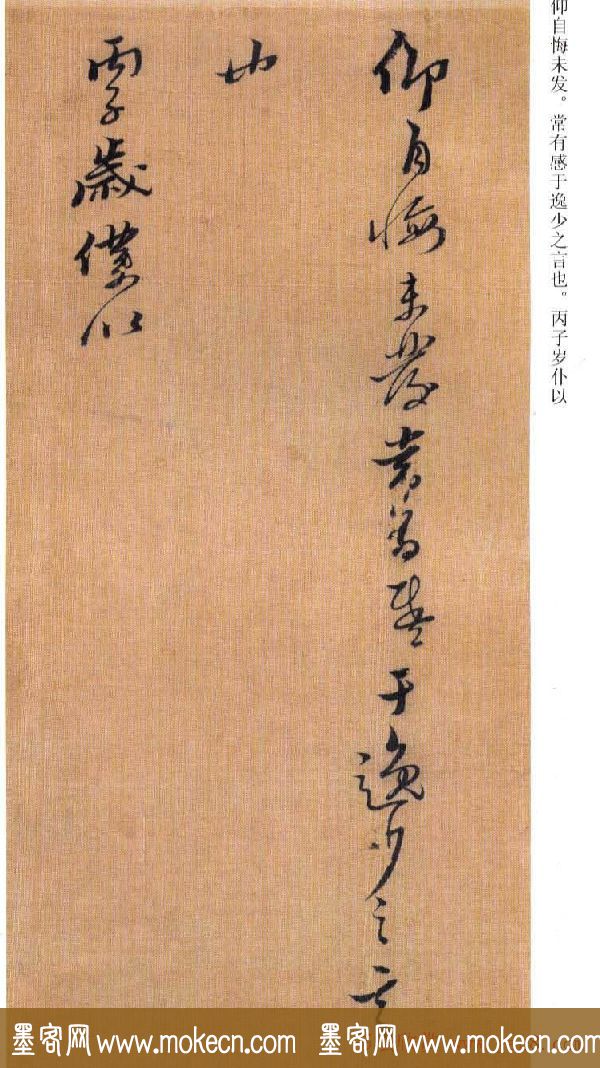 仰自悔未发。常有感于逸少之言也。丙子岁仆以
仰自悔未發常有感于逸少之言
也
丙子歲僕以
墨客网 www.mokecn.com 墨客网 www.mokecn.com